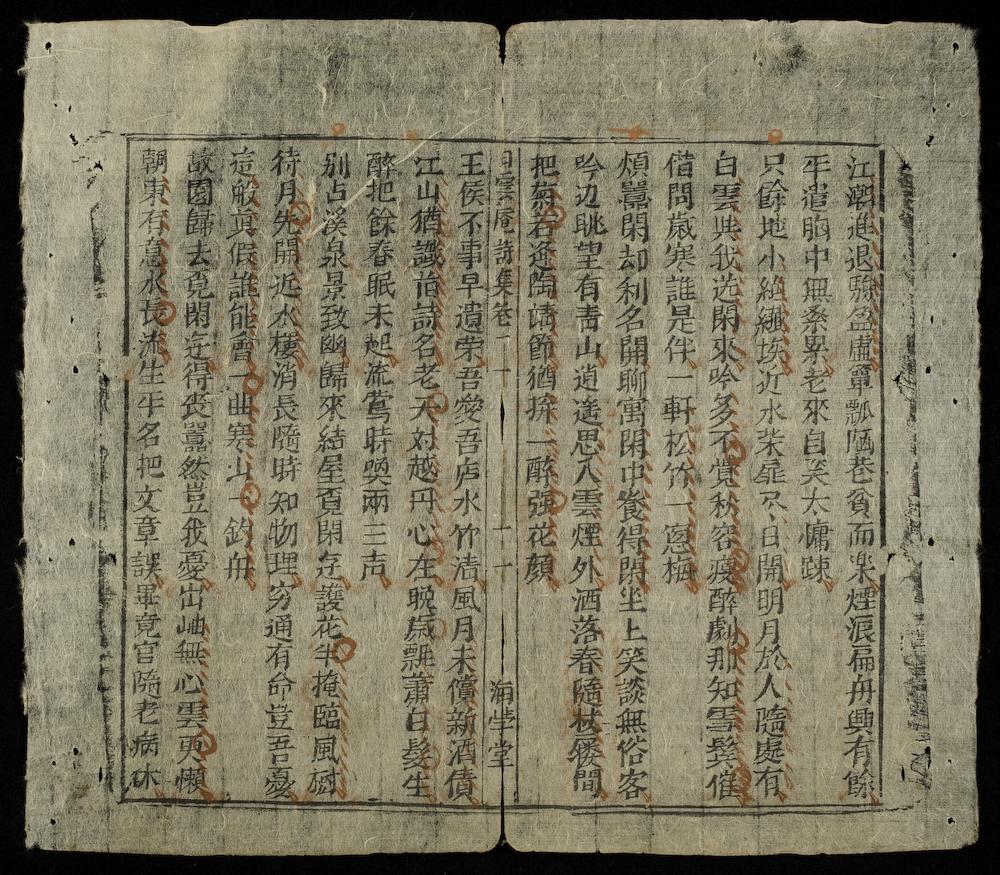 江潮進退驗盈虛簞瓢陋巷貧而楽煙浪扁舟興有餘
平遣胸中無系累老來自笑太慵疎
只餘地小絕纖埃近水柴扉尽日開明月於人隨處有
白雲與我选閑來吟多不覚秋容瘦醉劇那知雪鬂催
借問歲寒誰是伴一軒松竹一窓梅
煩囂閑却利名開聊寓閑中養得閑坐上笑談無俗客
吟辺眺望有青山逍遥思入雲煙外洒落春隨杖屨間
把菊若逢陶靖節猶拚一醉强花顔
白雲庵詩集巻一 十一 海學堂
王侯不事早遺荣吾愛吾庐水竹清風月未償新酒債
江山猶識旧詩名老天对越丹心在晚歲飄蕭白髮生
醉把餘春眠未起流鶯時喚兩三声
别占溪泉景致幽歸來結屋頁閑延護花半掩臨風𢩣
待月先開近水樓消長隨時知物理穷通有命豈吾憂
這般真假誰能會一曲寒江一釣舟
故園歸去覔閑逰得丧囂然豈我憂出岫無心雲更懶
朝東有意水長流生平名把文章誤畢竟官隨老病休